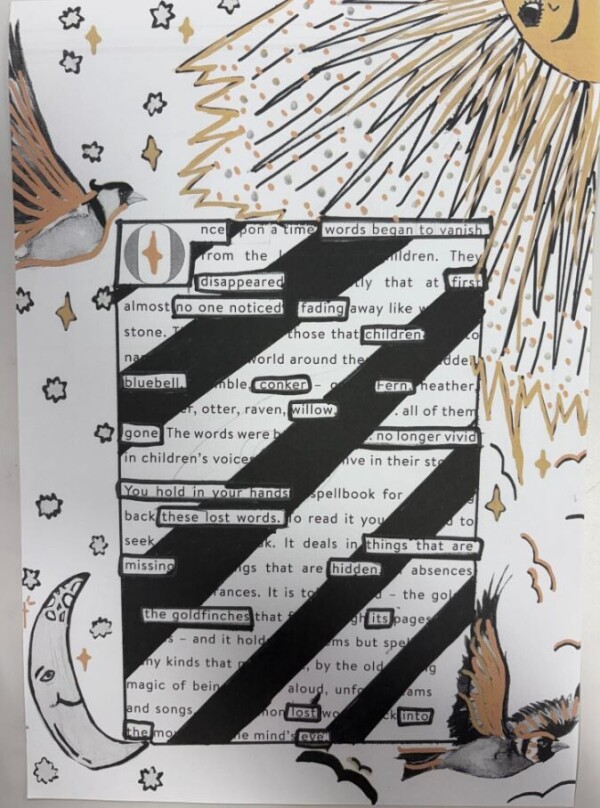 Once upon a time words began to vanish
from the children. They
disappeared tly that at first
almost no one noticed fading away like w
stone. T those that children to
na world around the dde
bluebell. mble, conker – o Fern, heather,
er, otter, raven, willow, . all of them
gone The words were b no longer vivid
in children's voices ive in their sto
You hold in your hands spellbook for
back these lost words. To read it you d to
seek k. It deals in things that are
missing ngs that are hidden absences
rances. It is to d – the gol
the goldfinches that f gh its pages
s – and it hold ems but spel
any kinds that , by the old ng
magic of bein aloud, unfo ams
and songs, on lost wo ck into
the mo e mind's eye